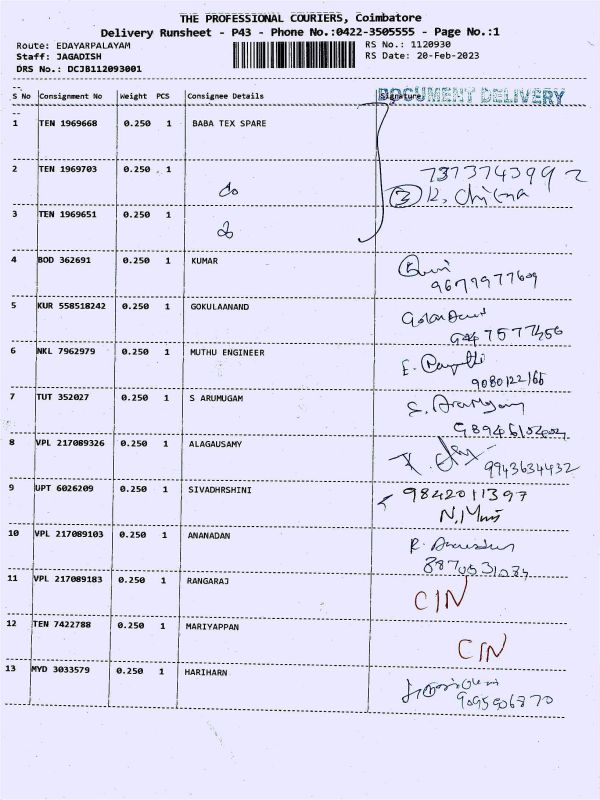 THE PROFESSIONAL COURIERS, Coimbatore
Delivery Runsheet - P43 - Phone No.:0422-3505555 - Page No.:1
Route: EDAYARPALAYAM RS No.: 1120930
Staff: JAGADISH RS Date: 20-Feb-2023
DRS No.: DCJB112093001
DOCUMENT DELIVERY
S No Consignment No Weight PCS Consignee Details Signature
1 TEN 1969668 0.250 1 BABA TEX SPARE
2 TEN 1969703 0.250 1 do 7373743992
3 K. Chitra
3 TEN 1969651 0.250 1
4 BOD 362691 0.250 1 KUMAR
9677977609
5 KUR 558518242 0.250 1 GOKULAANAND
9447577456
6 NKL 7962979 0.250 1 MUTHU ENGINEER E.
9080122166
7 TUT 352027 0.250 1 S ARUMUGAM S. Arumugam
8 VPL 217089326 0.250 1 ALAGAUSAMY 9943634432
9 UPT 6026209 0.250 1 SIVADHRSHINI 9842011397
10 VPL 217089103 0.250 1 ANANADAN R.
8870531034
11 VPL 217089183 0.250 1 RANGARAJ CIN
12 TEN 7422788 0.250 1 MARIYAPPAN CIN
13 MYD 3033579 0.250 1 HARIHARN
9095906870